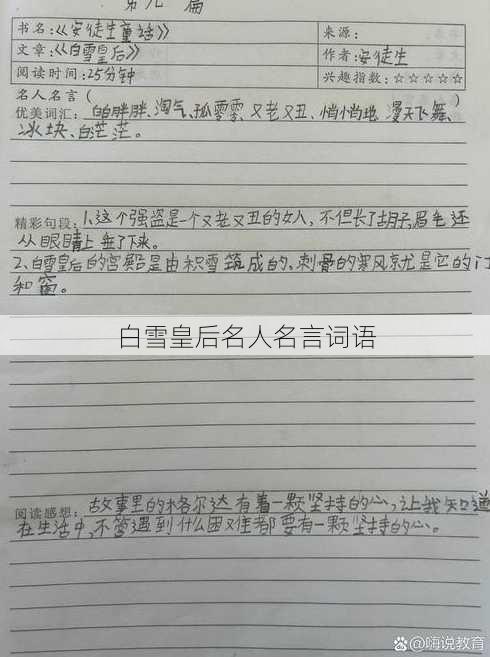 第九篇
书名:《安徒生童话》
来源:
文章:《白雪皇后》
作者:安徒生
阅读时间:25分钟
兴趣指数:☆☆☆☆☆
名人名言(
优美词汇:白胖胖、淘气、孤零零、又老又丑、悄悄地、漫天飞舞、
冰块、白茫茫。
精彩句段:1、这个强盗是一个又老又丑的女人,不但长了胡子,眉毛还
从眼睛上垂了下来。
2、白雪皇后的宫殿是由积雪筑成的,刺骨的寒风就是它的门
和窗。
白雪皇后名人名言词语
阅读感想:故事里的格尔达有着一颗坚持的心,让我知道
在生活中,不管遇到什么困难都要有一颗坚持的心。
百度@嗨说教育